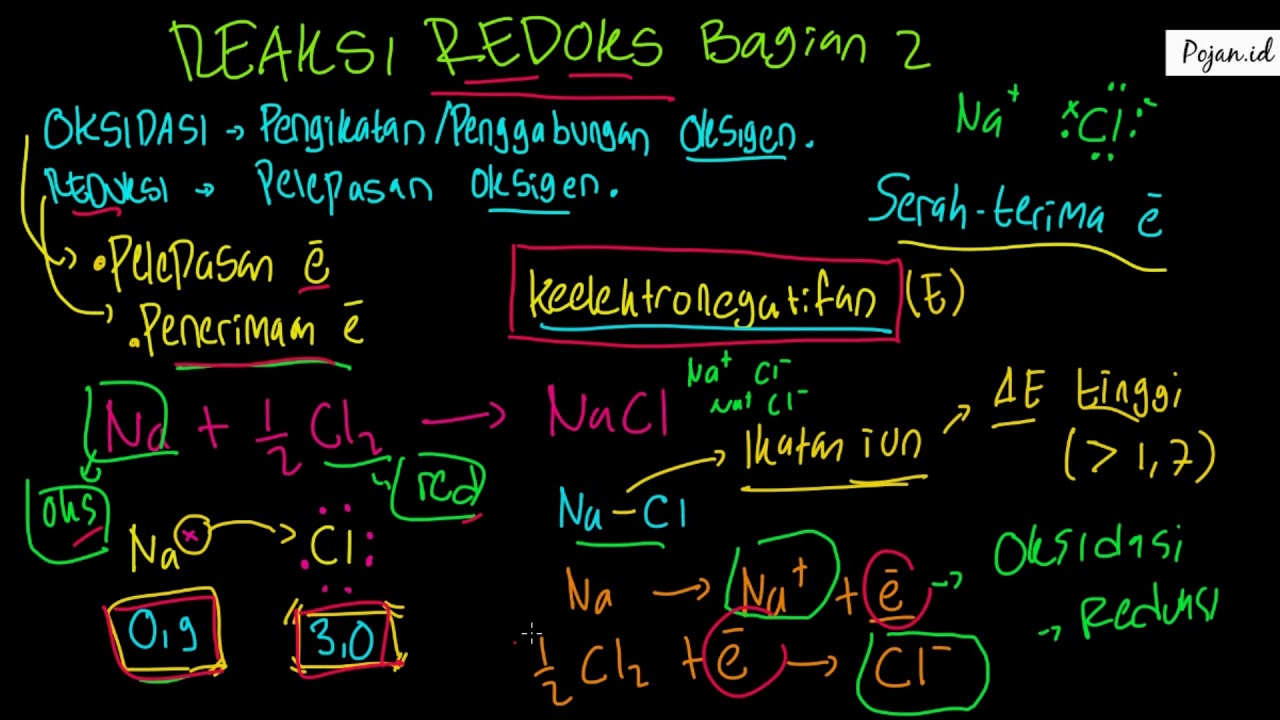 REAKSI REDOKS Bagian 2
Pojan.id
OKSIDASI → Pengikatan/Penggabungan Oksigen.
REDUKSI → Pelepasan Oksigen.
Na⁺ Cl⁻
Serah-terima ē
• Pelepasan ē
• Penerimaan ē
keelektronegatifan (E)
Na⁺ Cl⁻
Na⁺ Cl⁻
Na + 1/2 Cl₂ → NaCl
oks
red
Ikatan ion → ΔE tinggi
(> 1,7)
Na – Cl
Na → Cl
0,9
3,0
Na → Na⁺ + ē → Oksidasi
1/2 Cl₂ + ē → Cl⁻ → Reduksi